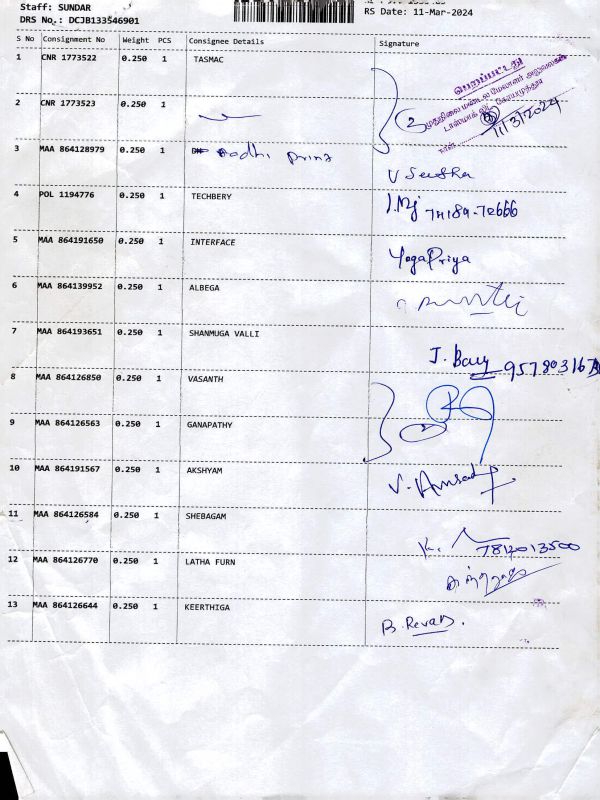 Staff: SUNDAR
DRS No.: DCJB133546901
RS Date: 11-Mar-2024
S No Consignment No Weight PCS Consignee Details Signature
1 CNR 1773522 0.250 1 TASMAC
பெறப்பட்டது
முதுநிலை மண்டல மேலாளர் அலுவலகம்
டாஸ்மாக் லிட் கோயமுத்தூர்
நாள்
11/3/2024
2 CNR 1773523 0.250 1
2
3 MAA 864128979 0.250 1 prinz
V Seusha
4 POL 1194776 0.250 1 TECHBERY
74189-72666
5 MAA 864191650 0.250 1 INTERFACE
YogaPriya
6 MAA 864139952 0.250 1 ALBEGA
7 MAA 864193651 0.250 1 SHANMUGA VALLI
J.
8 MAA 864126850 0.250 1 VASANTH
9 MAA 864126563 0.250 1 GANAPATHY
2
10 MAA 864191567 0.250 1 AKSHYAM
11 MAA 864126584 0.250 1 SHEBAGAM
7812013500
12 MAA 864126770 0.250 1 LATHA FURN
13 MAA 864126644 0.250 1 KEERTHIGA
B. Revati.